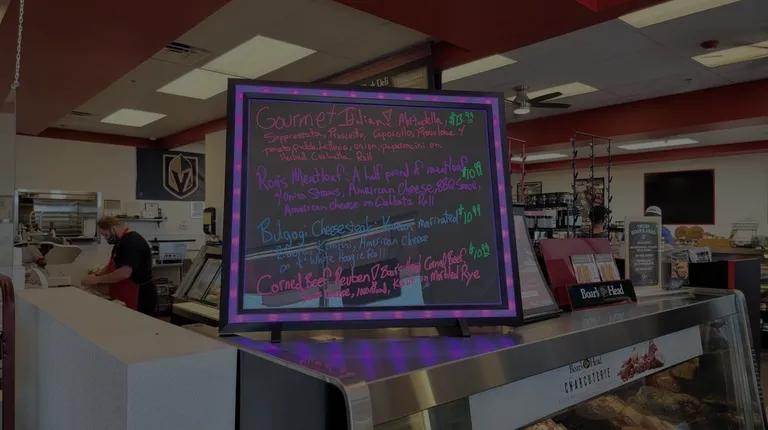 Deli
Gourmet Italian! Mortadella, $13.99
Soppressata, Prosciutto, Capocollo, Provolone &
tomato, lettuce, onion, pepperoncini on
Ciabatta Roll
Ron's Meatloaf: A half pound of meatloaf $10.99
Onion Straws, American Cheese, BBQ Sauce,
American cheese on Ciabatta Roll
Bulgogi Cheesesteak: Korean marinated $10.99
Kimchi, American Cheese
on a White Hoagie Roll
Corned Beef Reuben! Boar's Head Corned Beef $10.99
on Marbled Rye
Boar's Head
Boar's Head
CHARCUTERIE